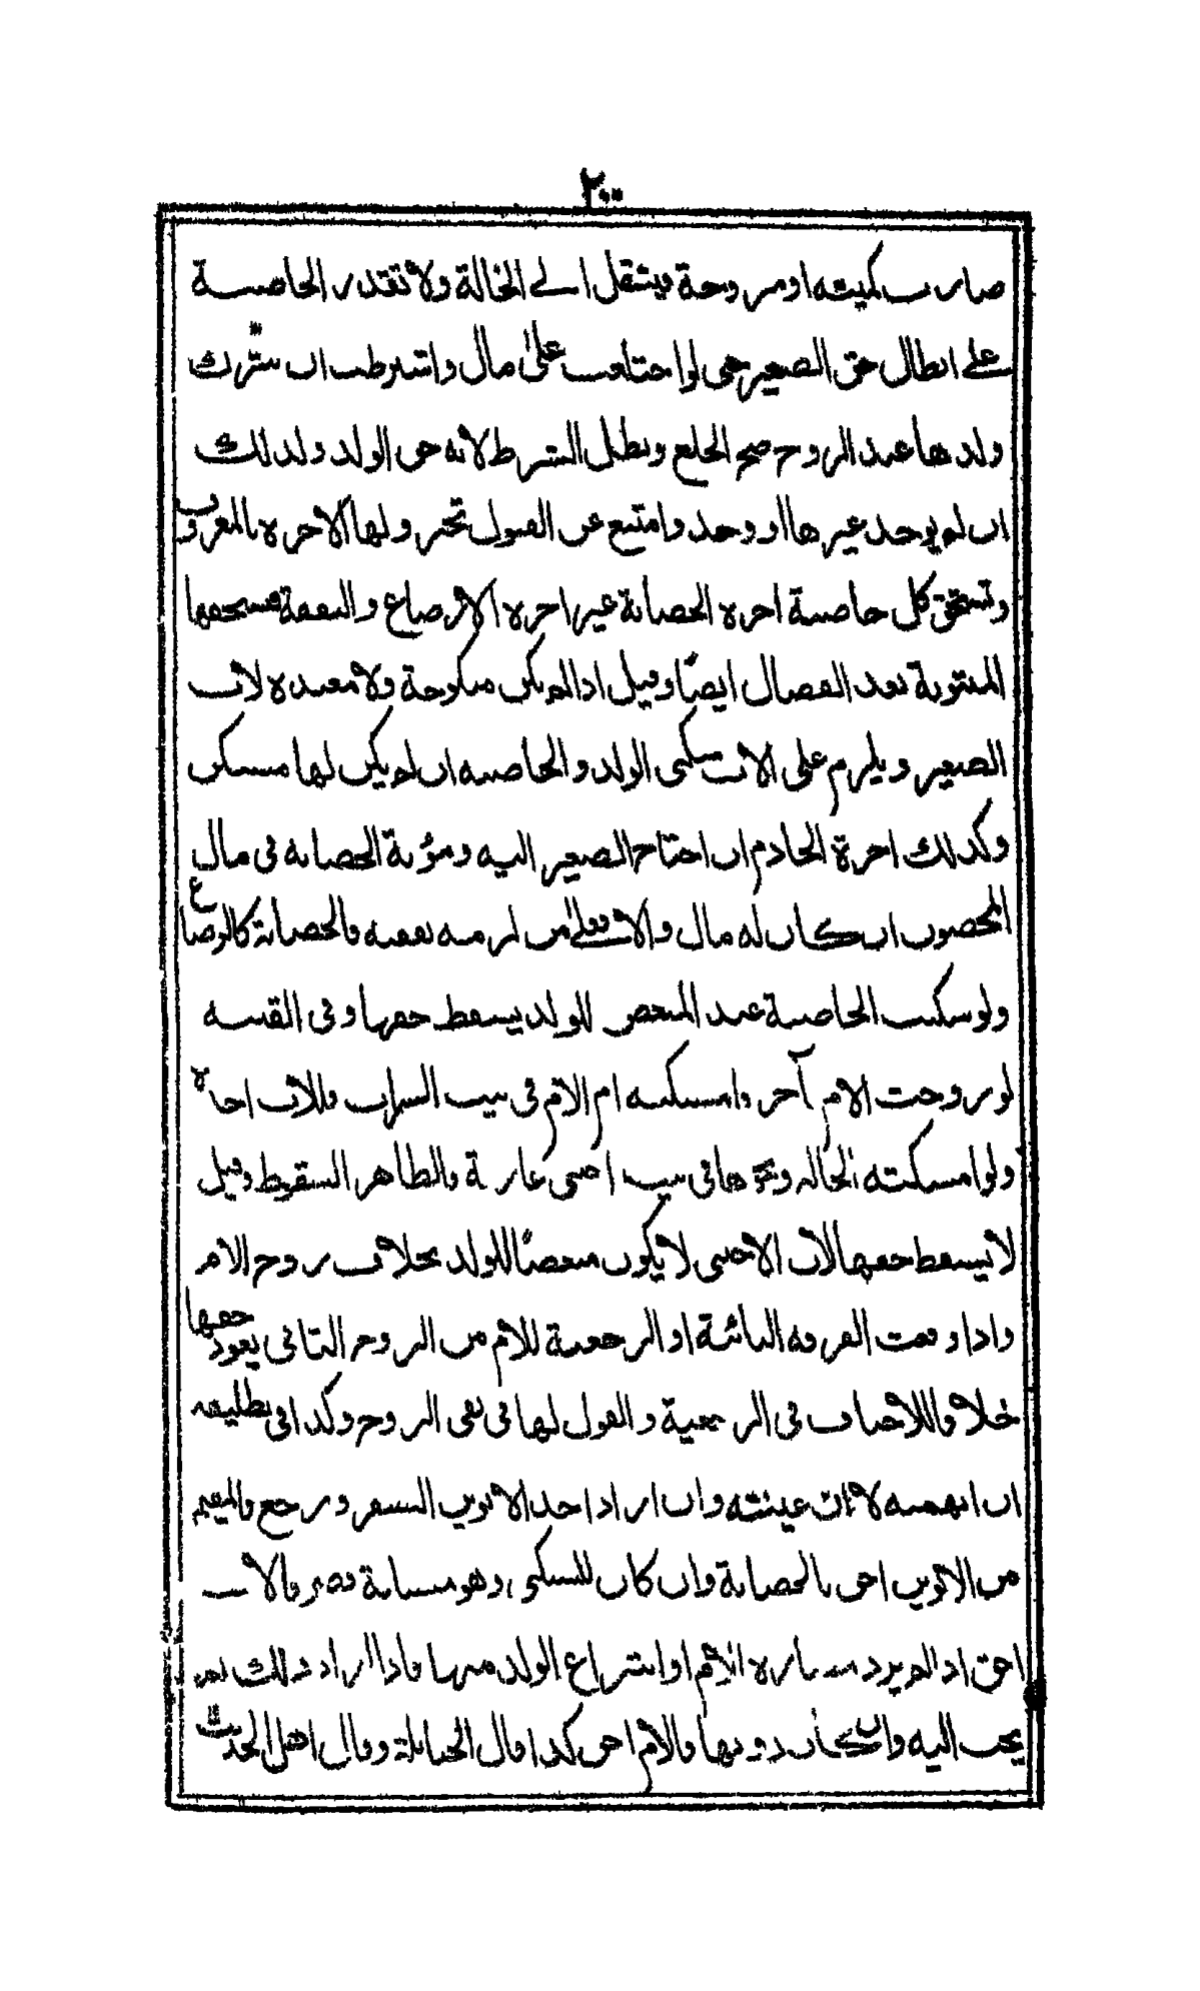 ٢٠٠
صارت كميته او مزوجة فينتقل الى الخالة ولا تقدر الحاضنة
على ابطال حق الصغير حتى لو اختلعت على مال واشترطت ان تترك
ولدها عند الزوج صح الخلع وبطل الشرط لانه حق الولد ولذلك
ان لم يوجد غيرها او وجد وامتنع عن القبول تجبر ولها الاجرة بالمعروف
وتستحق كل حاضنة اجرة الحضانة غير اجرة الارضاع والنفقة فتستحقها
المبتوتة بعد الفصال ايضًا وقيل اذا لم يكن منكوحة ولا معتدة لاب
الصغير ويلزم على الاب سكنى الولد والحاضنة ان لم يكن لها مسكن
وكذلك اجرة الخادم ان احتاج الصغير اليه ومؤنة الحضانة فى مال
المحضون ان كان له مال والا فعلى من لزمه نفقته فالحضانة كالرضاع
ولو سكنت الحاضنة عند المبغض للولد يسقط حقها وفى القنية
لو تزوجت الام آخر وامسكته ام الام فى بيت الراب فللاب اخذه
ولو امسكته الخالة ونحوها فى بيت اجنبى عازبة فالظاهر السقوط وقيل
لا يسقط حقها لان الاجنبى لا يكون مبغضًا للولد بخلاف زوج الام
واذا وقعت الفرقة البائنة او الرجعية للام من الزوج الثانى يعود حقها
خلافا للاحناف فى الرجعية والقول لها فى نفى الزوج وكذا فى تطليقه
ان ابهمته لا ان عينته وان اراد احد الابوين السفر ورجع فالمقيم
من الابوين احق بالحضانة وان كان للسكنى وهو مسافة قصر فالاب
احق اذا لم يرد مضارة الام او انتزاع الولد منها فاذا اراد ذلك لم
يجب اليه وان كان دونها فالام احق كذا قال الحنابلة وقال اهل الحديث